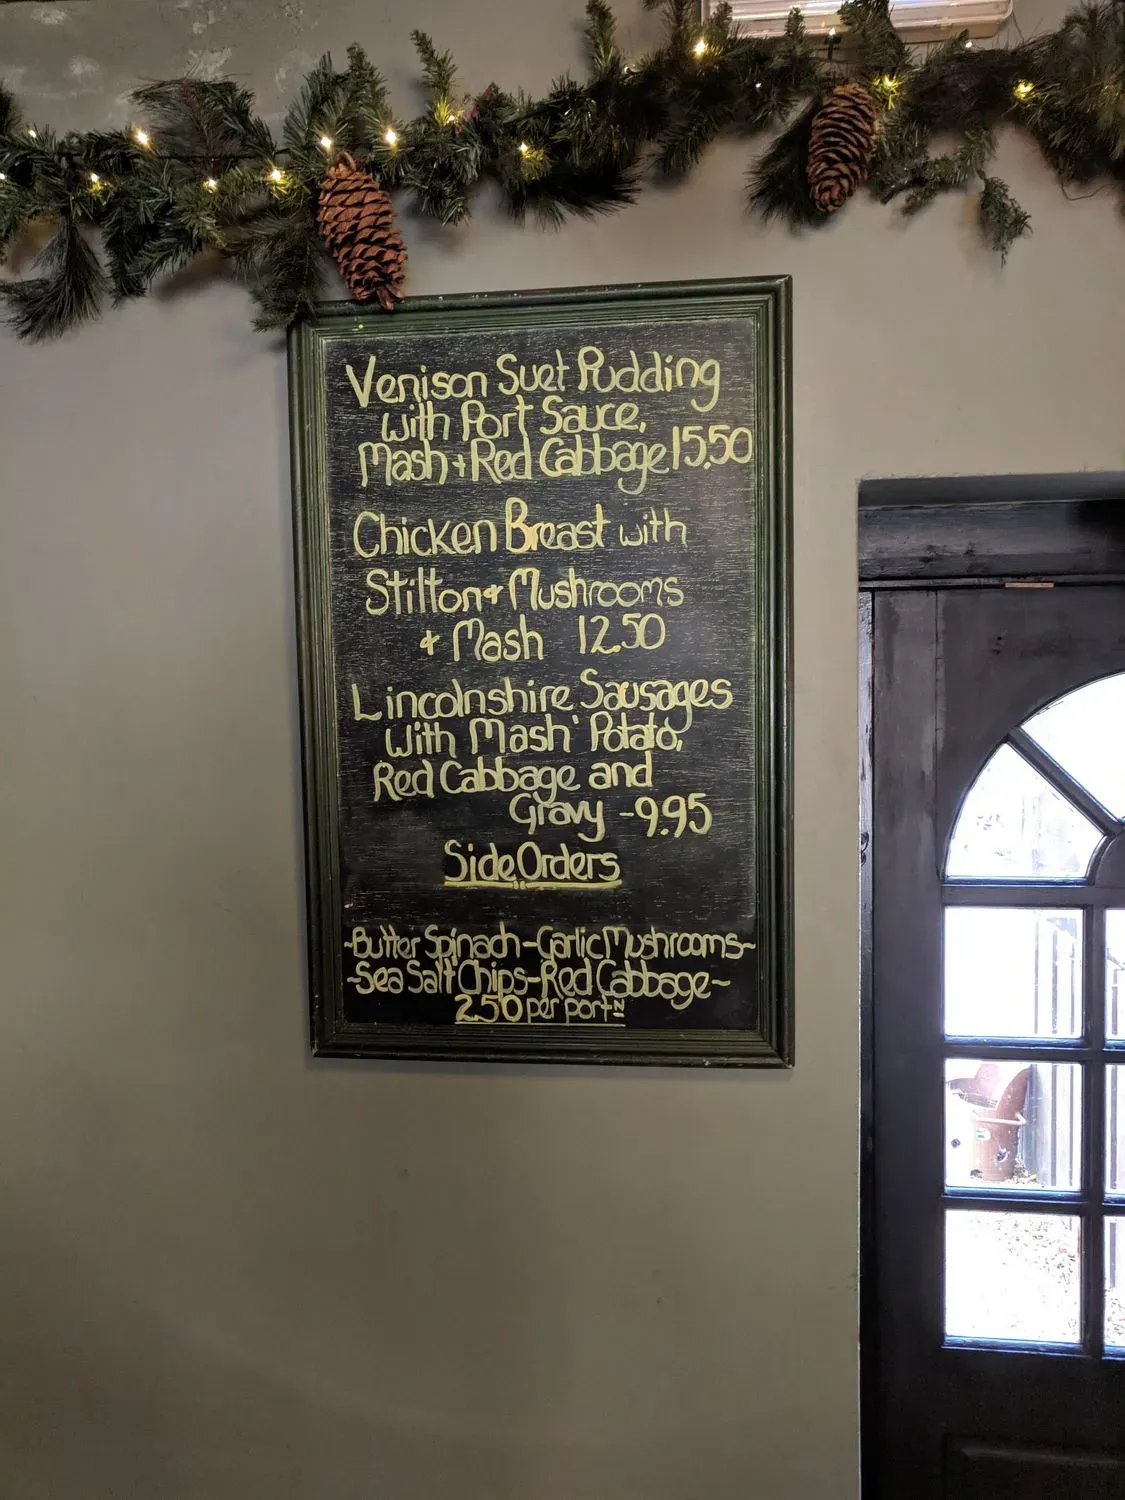 Venison Suet Pudding
with Port Sauce,
Mash + Red Cabbage 15.50
Chicken Breast with
Stilton + Mushrooms
+ Mash 12.50
Lincolnshire Sausages
with Mash Potato,
Red Cabbage and
Gravy - 9.95
Side Orders
~Butter Spinach - Garlic Mushrooms~
~Sea Salt Chips - Red Cabbage~
2.50 per portN